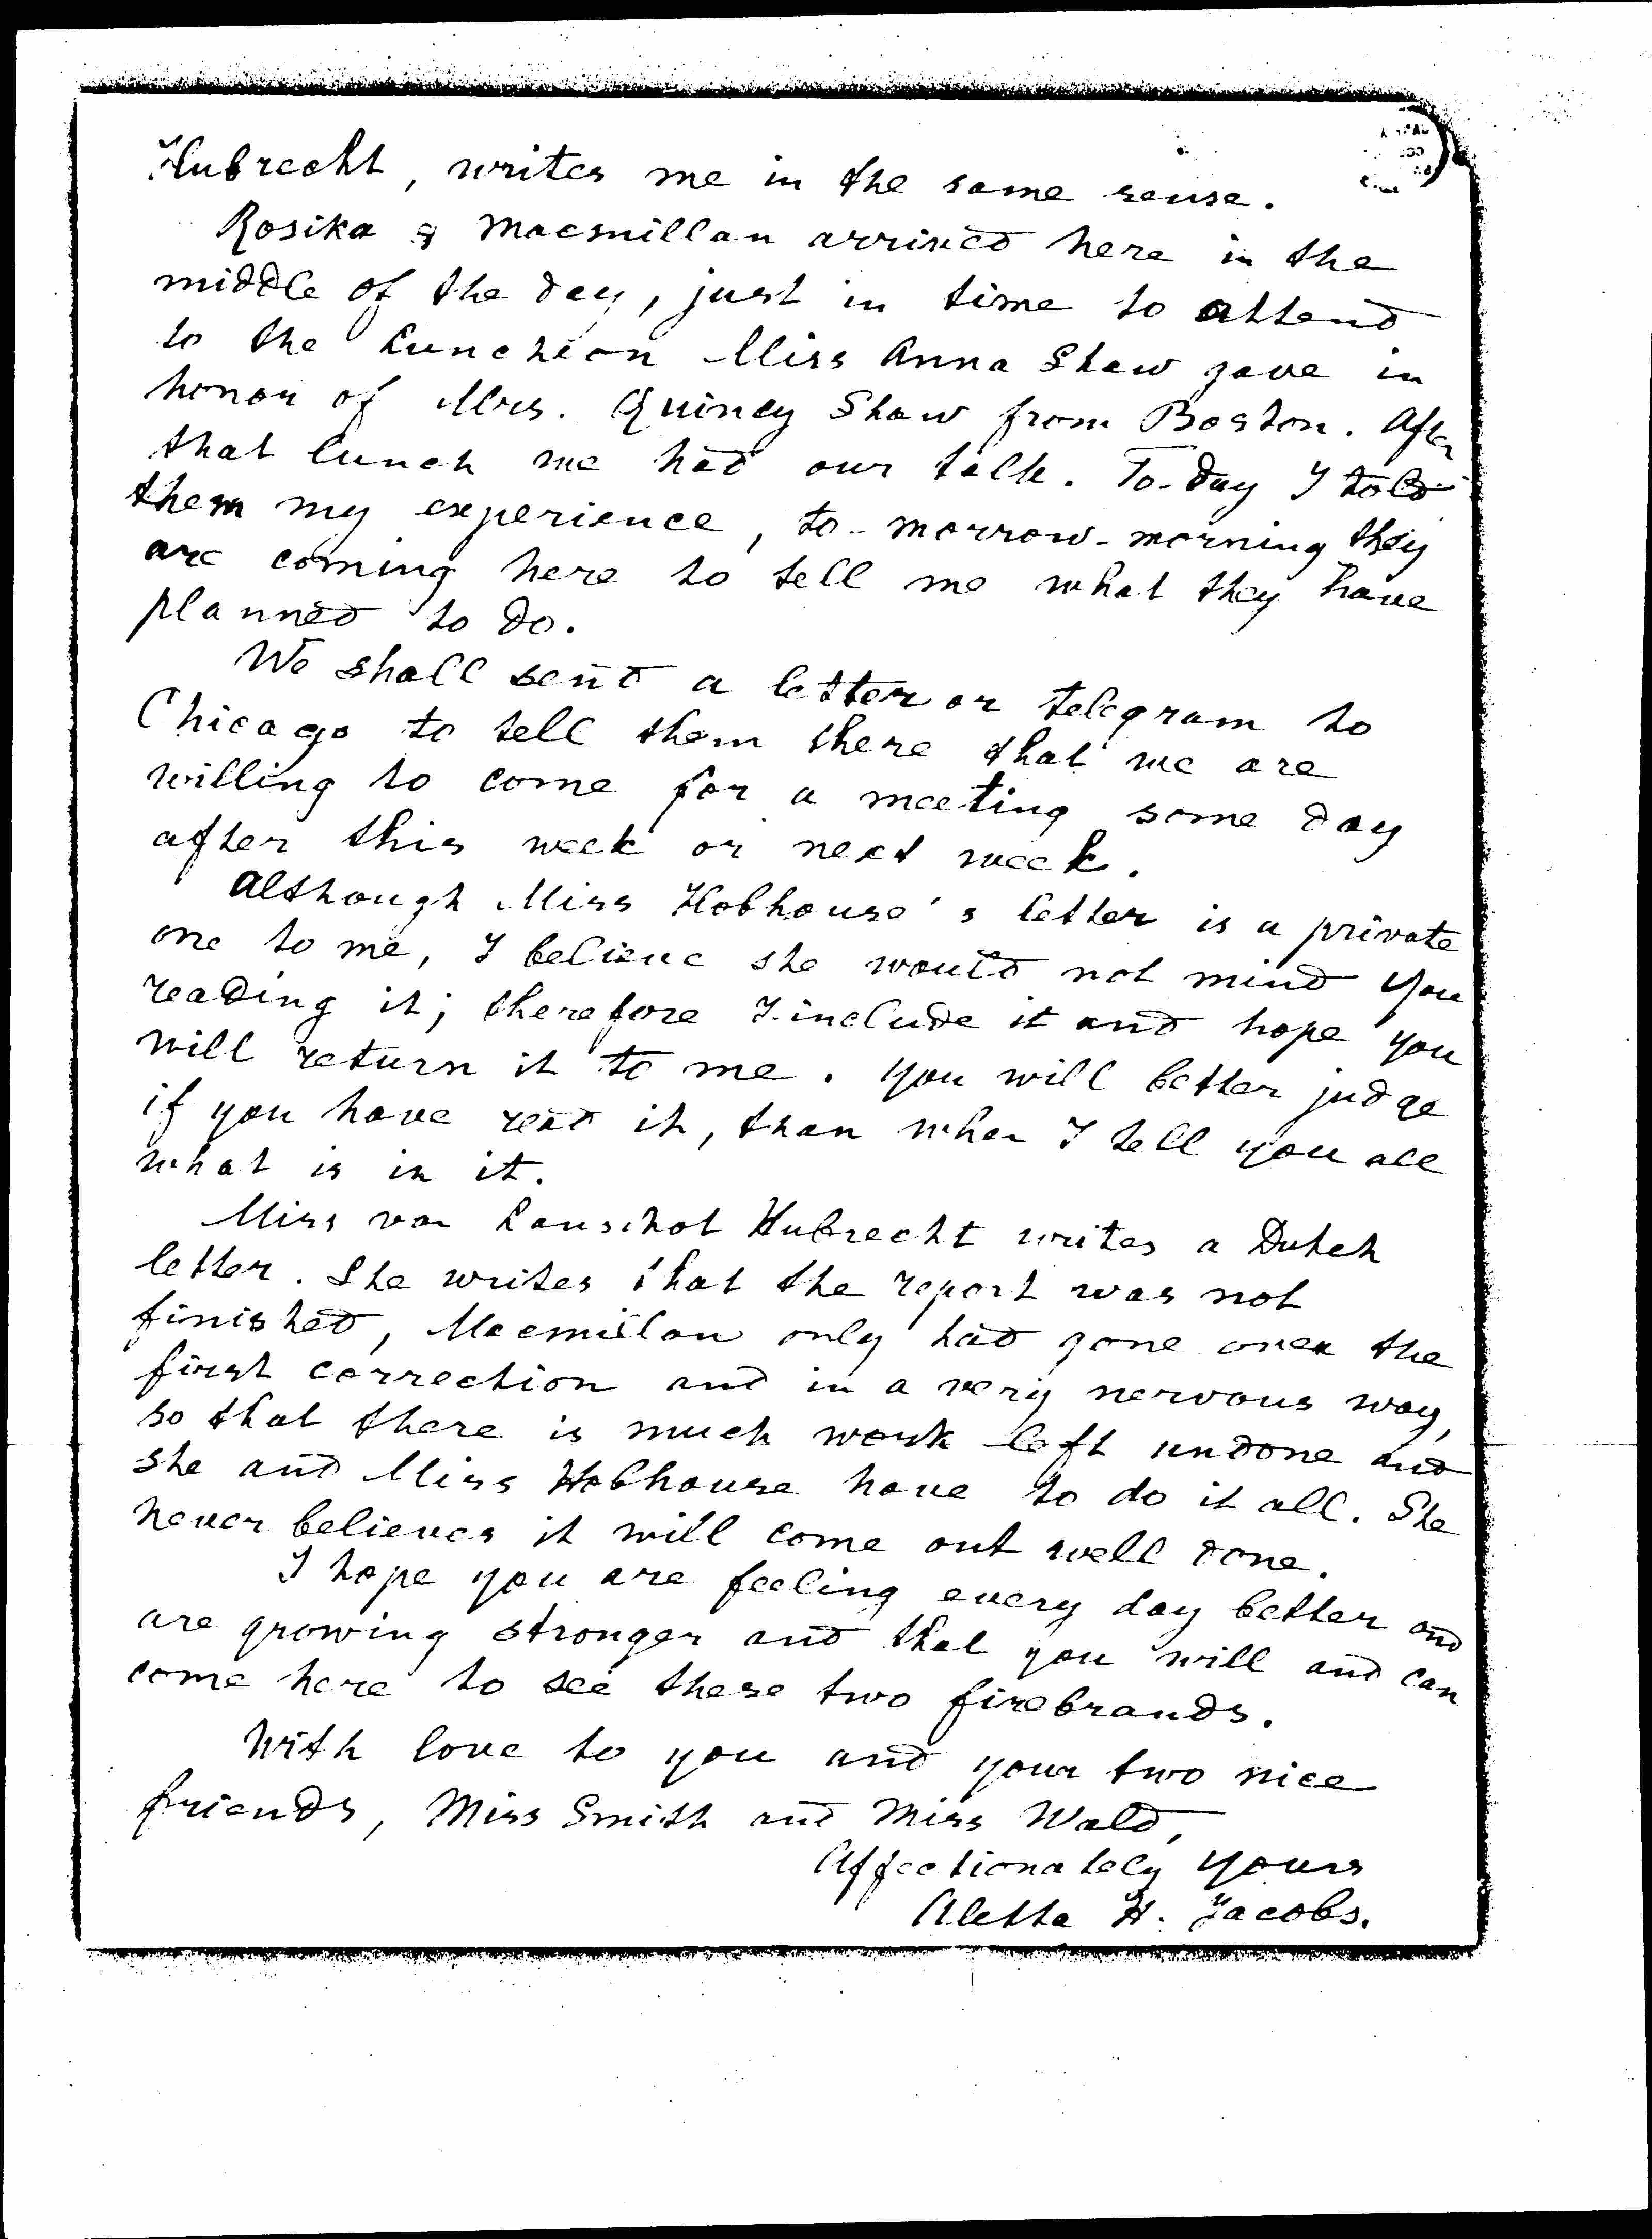 Hubrecht, writes me in the same sense.
Rosika & Macmillan arrived here in the
middle of the day, just in time to attend
to the Luncheon Miss Anna Shaw gave in
honor of Mrs. Quincy Shaw from Boston. After
that lunch we had our talk. To-day I told
them my experience, to-morrow-morning they
are coming here to tell me what they have
planned to do.
We shall send a letter or telegram to
Chicago to tell them there that we are
willing to come for a meeting some day
after this week or next week.
Although Miss Hobhouse's letter is a private
one to me, I believe she would not mind you
reading it; therefore I include it and hope you
will return it to me. You will better judge
if you have read it, than when I tell you all
what is in it.
Miss van Lanschot Hubrecht writes a Dutch
letter. She writes that the report was not
finished, Macmillan only had gone over the
first correction and in a very nervous way,
so that there is much work left undone and
she and Miss Hobhouse have to do it all. She
never believes it will come out well done.
I hope you are feeling every day better and
are growing stronger and that you will and can
come here to see these two firebrands.
With love to you and your two nice
friends, Miss Smith and Miss Wald,
Affectionately yours
Aletta H. Jacobs.